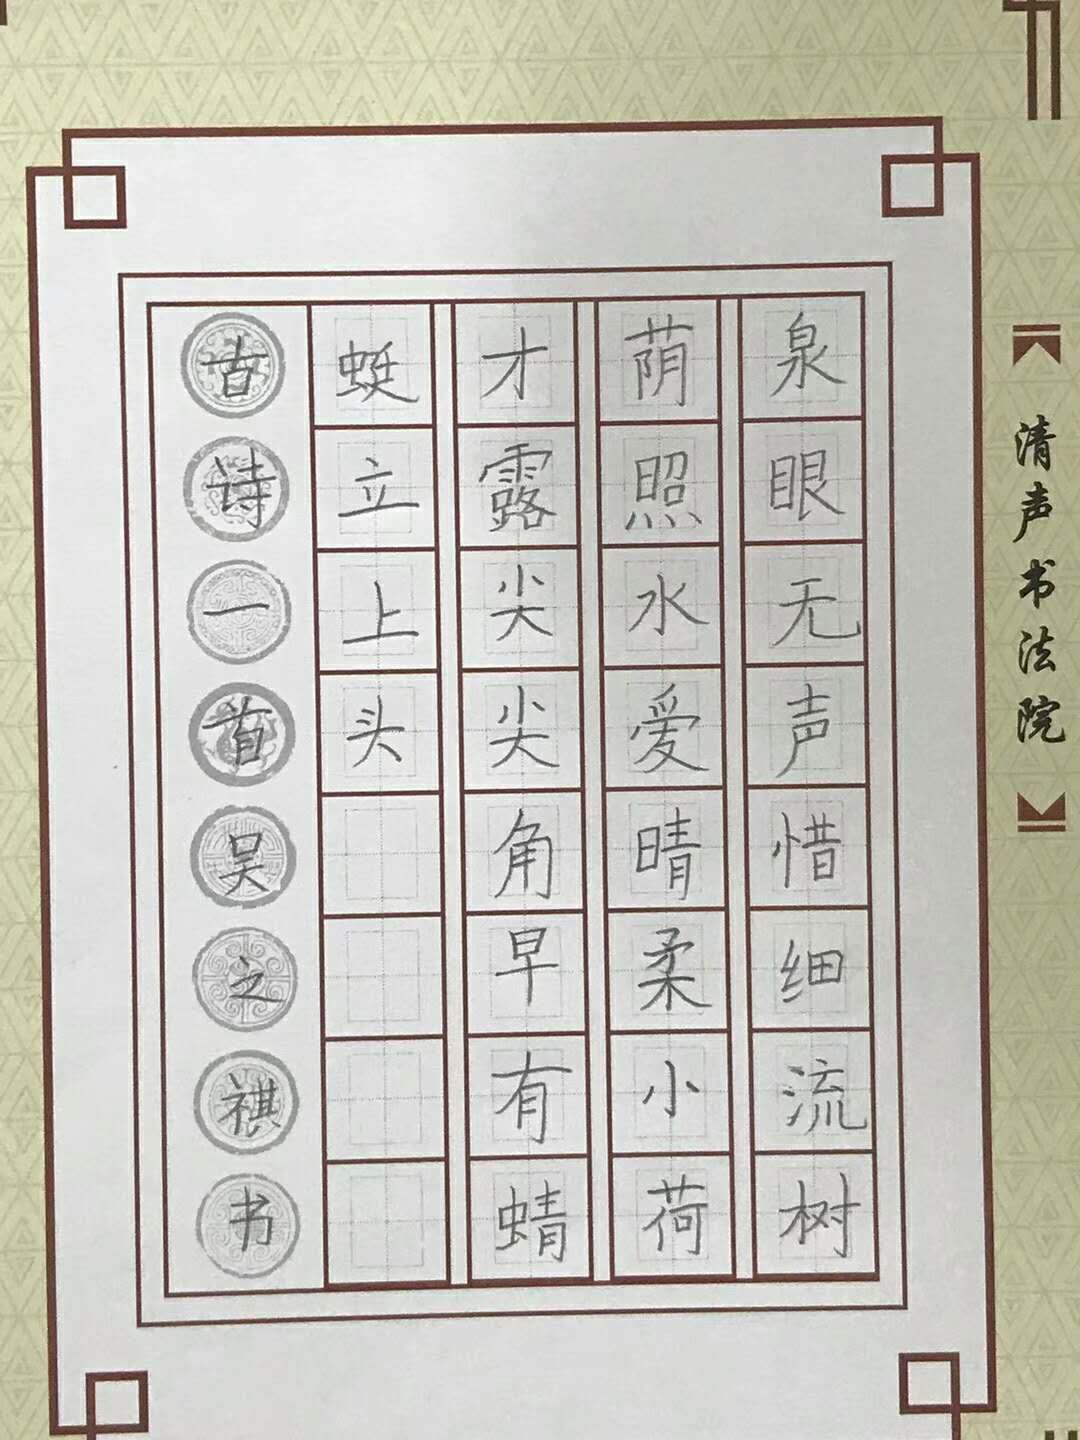 泉眼无声惜细流树
荫照水爱晴柔小荷
才露尖尖角早有蜻
蜓立上头
古诗一首吴之祺书
清声书法院